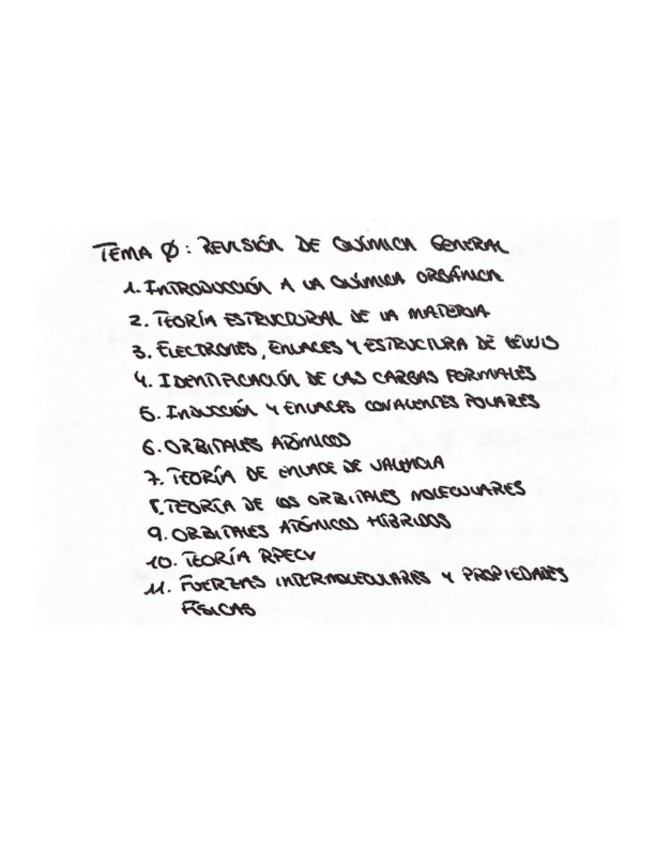 TEMA Ø: REVISIÓN DE QUÍMICA GENERAL
1. INTRODUCCIÓN A LA QUÍMICA ORGÁNICA
2. TEORÍA ESTRUCTURAL DE LA MATERIA
3. ELECTRONES, ENLACES Y ESTRUCTURA DE LEWIS
4. IDENTIFICACIÓN DE LAS CARGAS FORMALES
5. INDUCCIÓN Y ENLACES COVALENTES POLARES
6. ORBITALES ATÓMICOS
7. TEORÍA DE ENLACE DE VALENCIA
8. TEORÍA DE LOS ORBITALES MOLECULARES
9. ORBITALES ATÓMICOS HÍBRIDOS
10. TEORÍA RPECV
11. FUERZAS INTERMOLECULARES Y PROPIEDADES
FÍSICAS